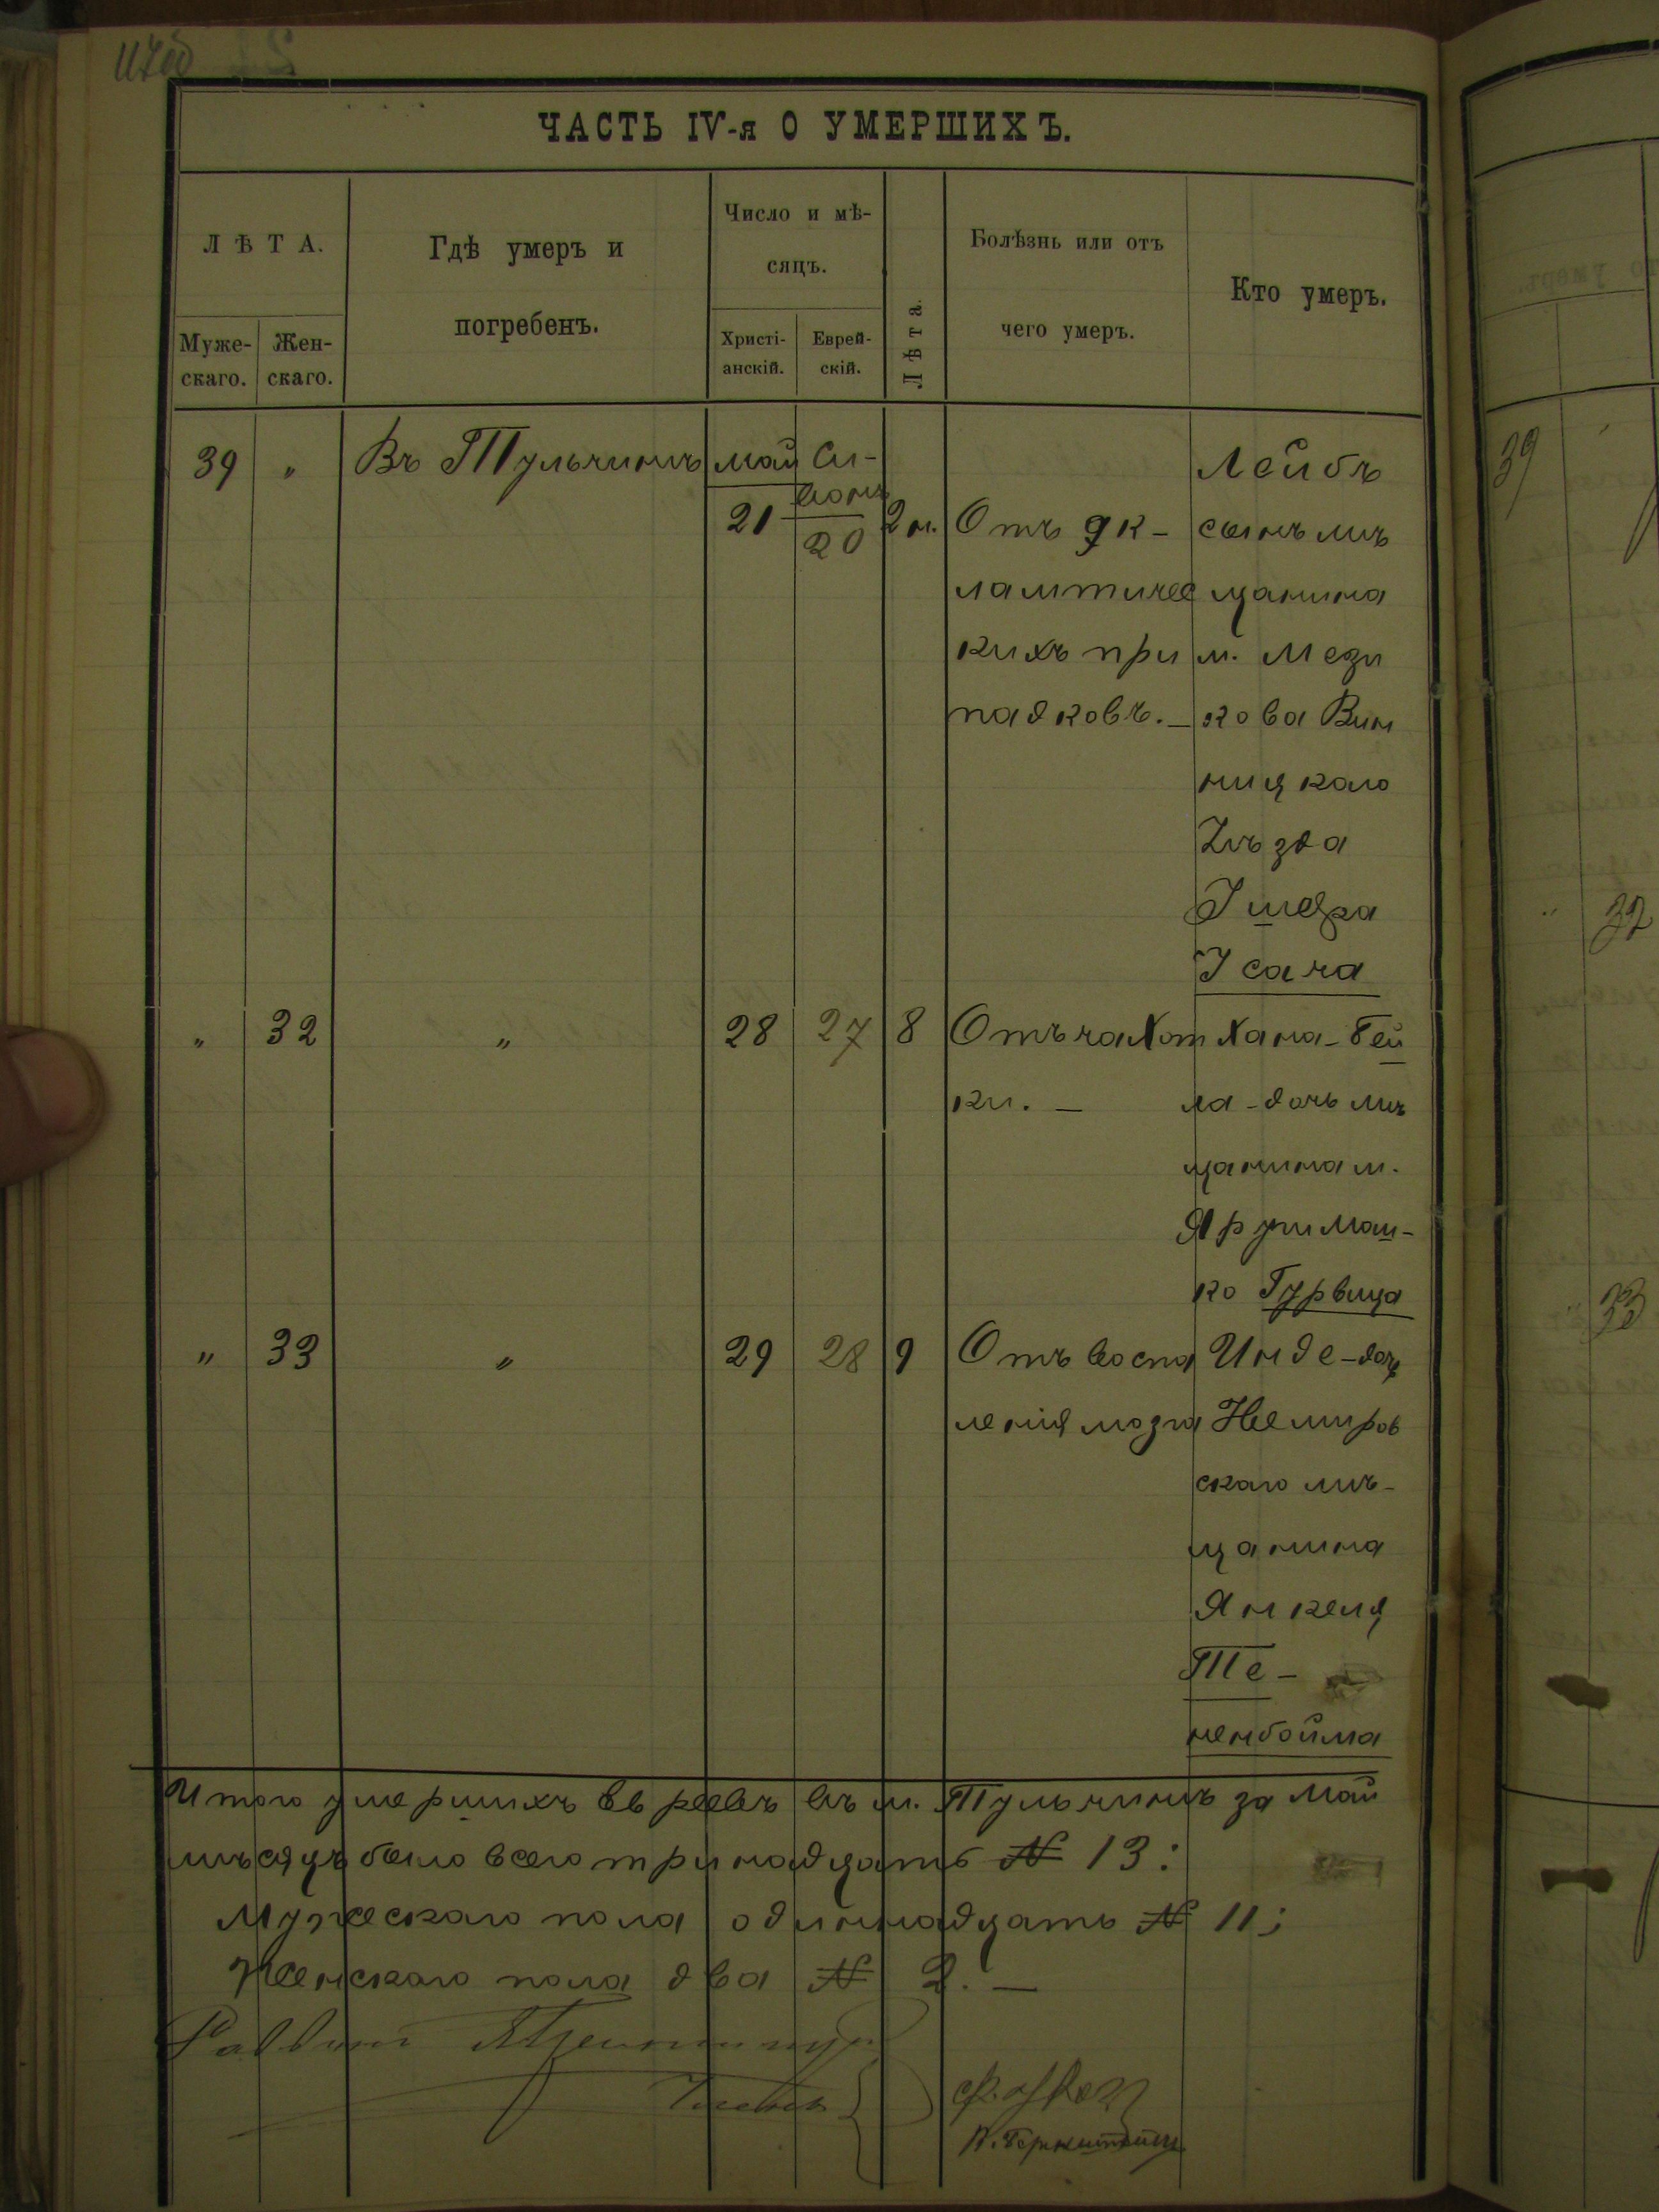 ЧАСТЬ IV-я О УМЕРШИХЪ.
ЛѢТА.
Муже-
скаго.
Жен-
скаго.
Гдѣ умеръ и
погребенъ.
Число и мѣ-
сяцъ.
Христі-
анскій.
Еврей-
скій.
Лѣта.
Болѣзнь или отъ
чего умеръ.
Кто умеръ.
39 " Въ Тульчинѣ май Си-
ванъ
21 20 2 м.
Отъ эк-
лампичес
кихъ при
падковъ. –
Лейбъ
сынъ мѣ
щанина
м. Мези
кова Вин
ницкаго
Уѣзда
Исача
" 32 " 28 27 8
Отъ чахот
ки. –
Хана-Бей
ла-дочь мѣ
щанина м.
ко Гурвица
" 33 " 29 28 9
Отъ воспа
ленія мозга
Инде-дочь
Немиров
скаго мѣ-
щанина
Янкеля
Те-
ненбойма
Итого умершихъ евреевъ въ м. Тульчинѣ за май
мѣсяцъ было всего тринадцать № 13:
Мужескаго пола одиннадцать № 11;
Женскаго пола два № 2. –
Раввинъ
39
32
33